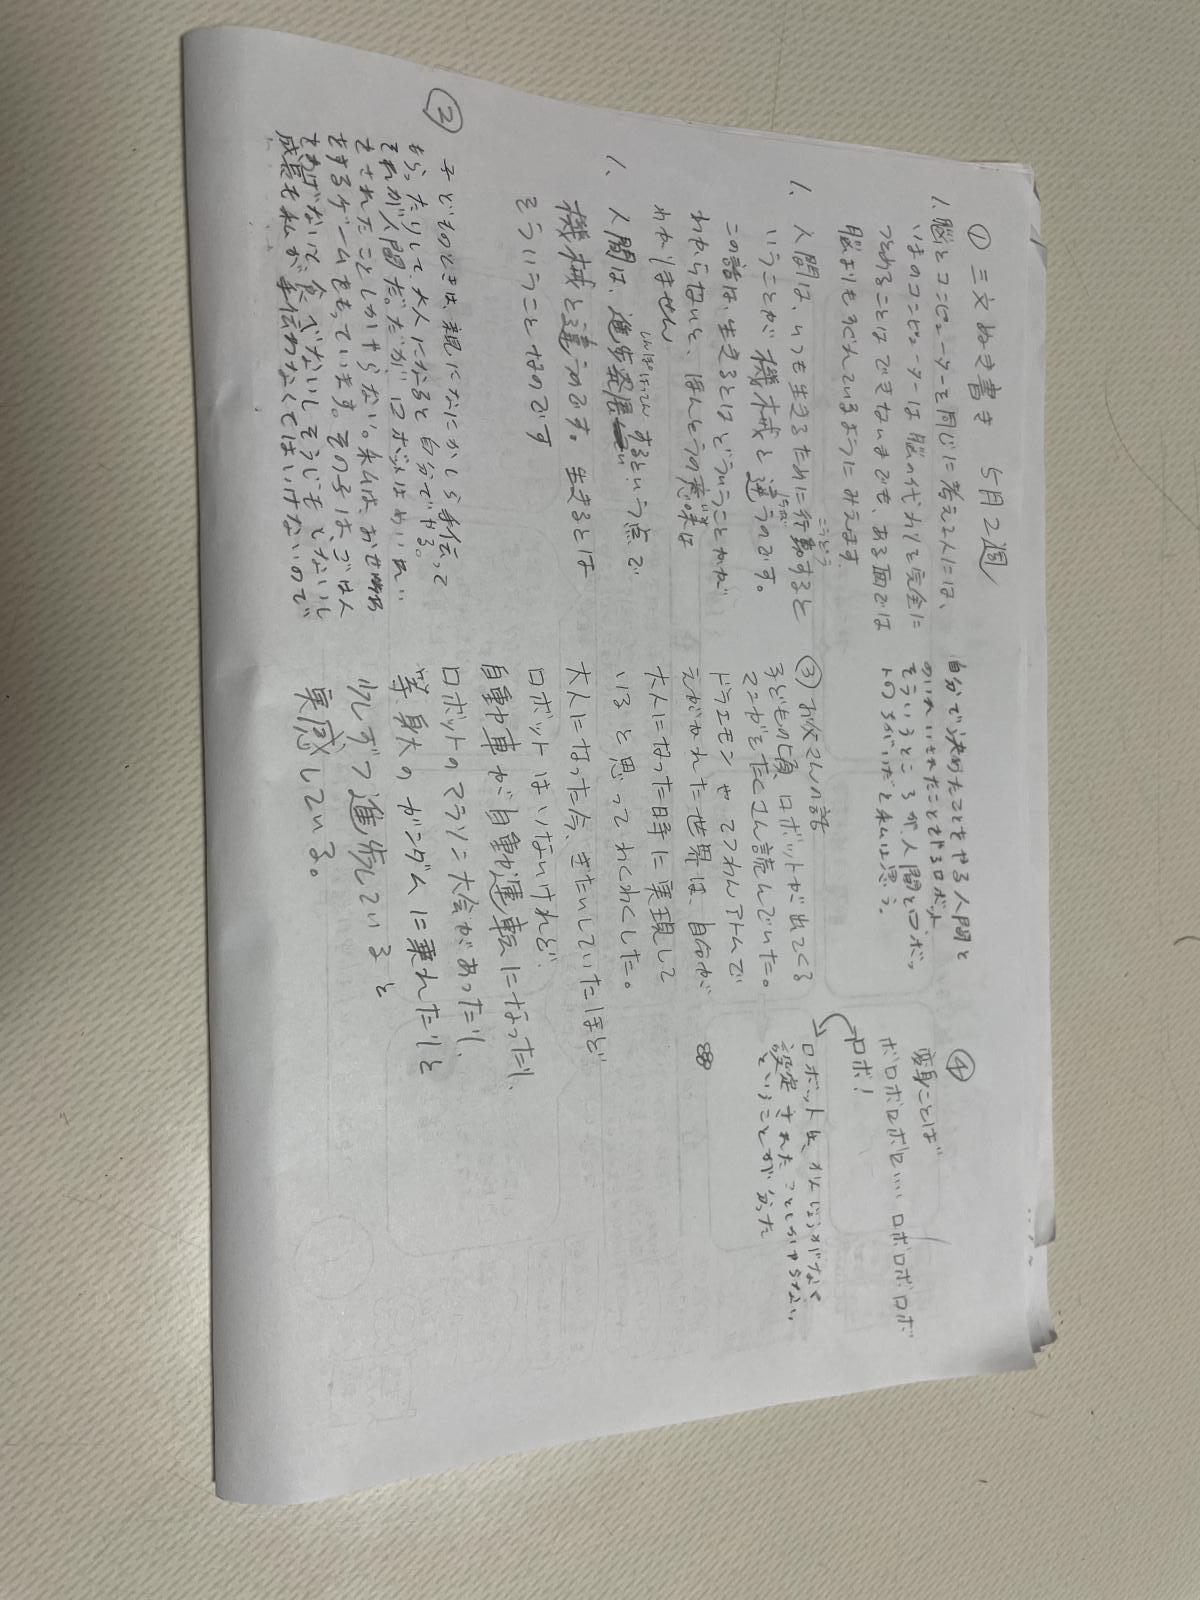 ① 三文ぬき書き 5月2週
1、脳とコンピューターを同じに考える人には、
いまのコンピューターは脳の代わりを完全に
つとめることはできないまでも、ある面では
脳よりもすぐれているようにみえます
1、人間は、いつも生きるために行動すると
こうどう
いうことが機械と違うのです。
ちが
この話は、生きるとはどういうことかが
わからないと、ほんとうの意味は
いみ
わかりません
1、人間は、進歩発展するという点で
しんぽはってん
機械と違うのです。生きるとは
そういうことなのです
②
子どものときは、親になにかしら手伝って
もらったりして大人になると自分でやる。
それが人間だ。だがロボットはめいれい
されたことしかやらない。私は、おせわ
をするゲームをもっています。その子は、ごはん
をあげないで食べないしそうじもしないし
成長も私が手伝わなくてはいけないので
自分で決めたことをやる人間と
めいれいされたことをやるロボット
そういうところが人間とロボッ
トのちがいだと私は思う。
③お父さんの話
子どもの頃、ロボットが出てくる
マンガをたくさん読んでいた。
ドラエモンやてつわんアトムで
えがかれた世界は、自分が
大人になった時に実現して
いると思ってわくわくした。
大人になった今、きたいしていたほど
ロボットはいないけれど、
自動車が自動運転になったり、
ロボットのマラソン大会があったり、
等身大のガンダムに乗れたりと
少しずつ進歩していると
実感している。
④
変身ことば
ボロボロボロ…ロボロボロボ
ロボ!
ロボットは、かんじょうがなく
設定されたことしかやらない
ということが分った